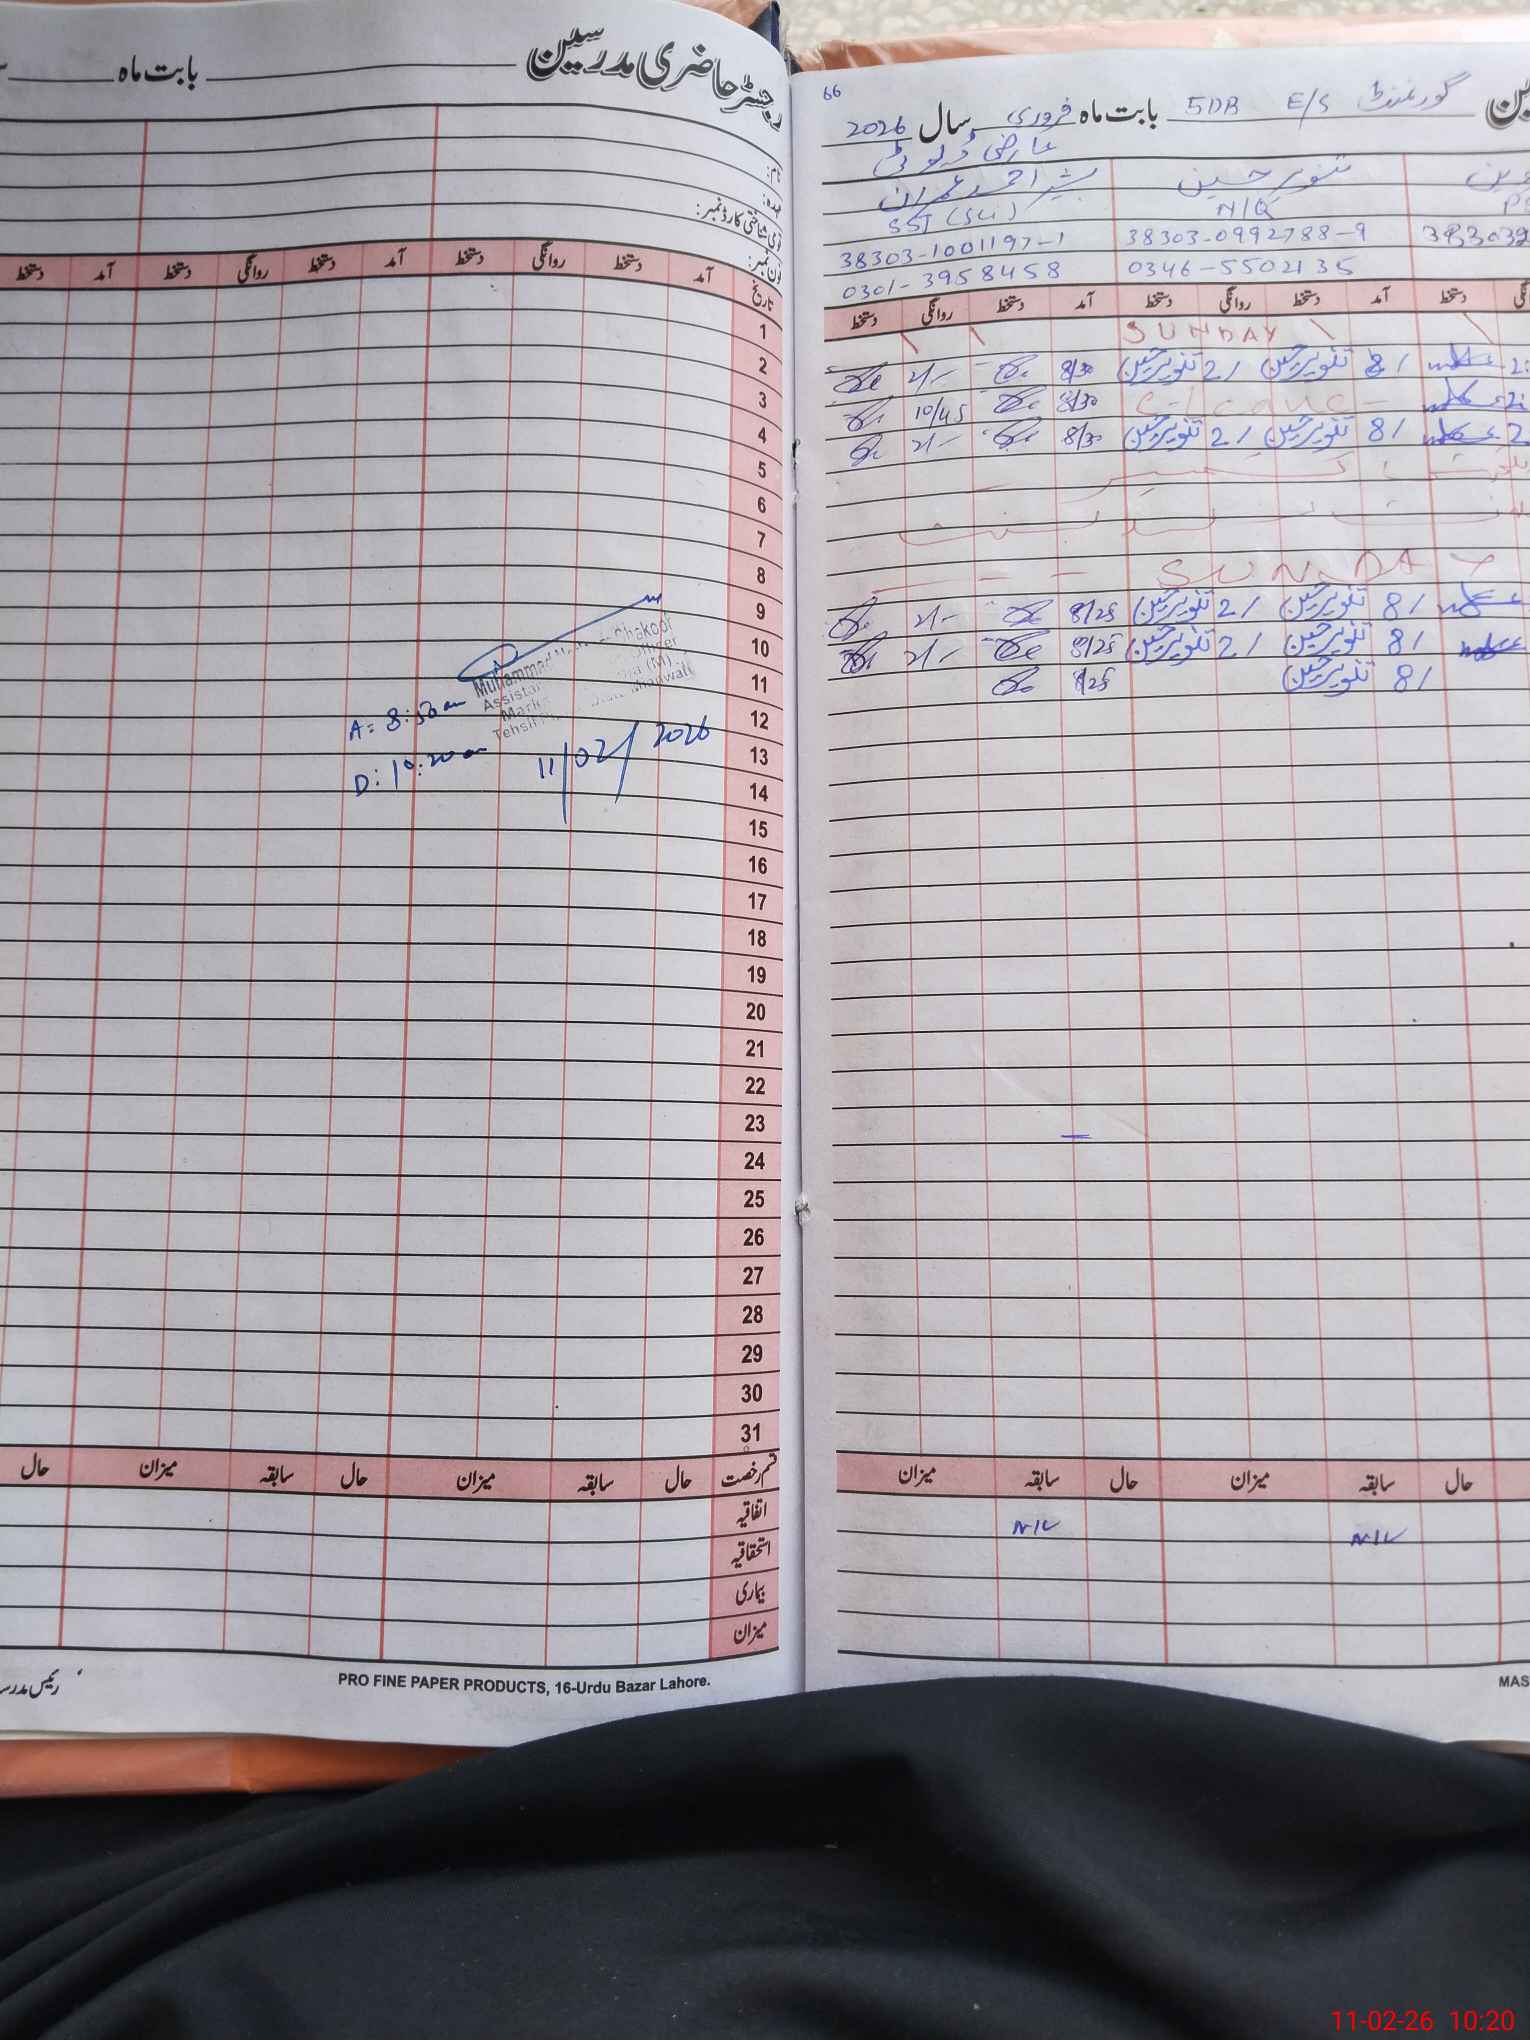 رجسٹر حاضری مدرسین بابت ماہ
نام:
عہدہ:
قومی شناختی کارڈ نمبر:
فون نمبر:
تاریخ آمد دستخط روانگی دستخط آمد دستخط روانگی دستخط آمد دستخط
1
2
3
4
5
6
7
8
9
10
11
12
13
14
15
16
17
18
19
20
21
22
23
24
25
26
27
28
29
30
31
Muhammad
Tehsil
A: 8:50 am
D: 10:20 am
11/02/2026
قسم رخصت حال سابقہ میزان حال سابقہ میزان حال
اتفاقیہ
استحقاقیہ
بیماری
میزان
PRO FINE PAPER PRODUCTS, 16-Urdu Bazar Lahore.
66
گورنمنٹ E/S 5DB بابت ماہ فروری سال 2026
عارضی ڈیوٹی
تنویر حسین بشیر احمد عمران
N/Q SST (Sci)
383032 38303-0992788-9 38303-1001197-1
0346-5502135 0301-3958458
دستخط آمد دستخط روانگی دستخط آمد دستخط روانگی دستخط
SUNDAY
8/ تنویر حسین 2/ تنویر حسین 8/30 2/-
8/30 10/45
8/ تنویر حسین 2/ تنویر حسین 8/30 2/-
SUNDAY
8/ تنویر حسین 2/ تنویر حسین 8/25 2/-
8/ تنویر حسین 2/ تنویر حسین 8/25 2/-
8/ تنویر حسین 8/25
حال سابقہ میزان حال سابقہ میزان
NIL NIL
MAS
11-02-26 10:20